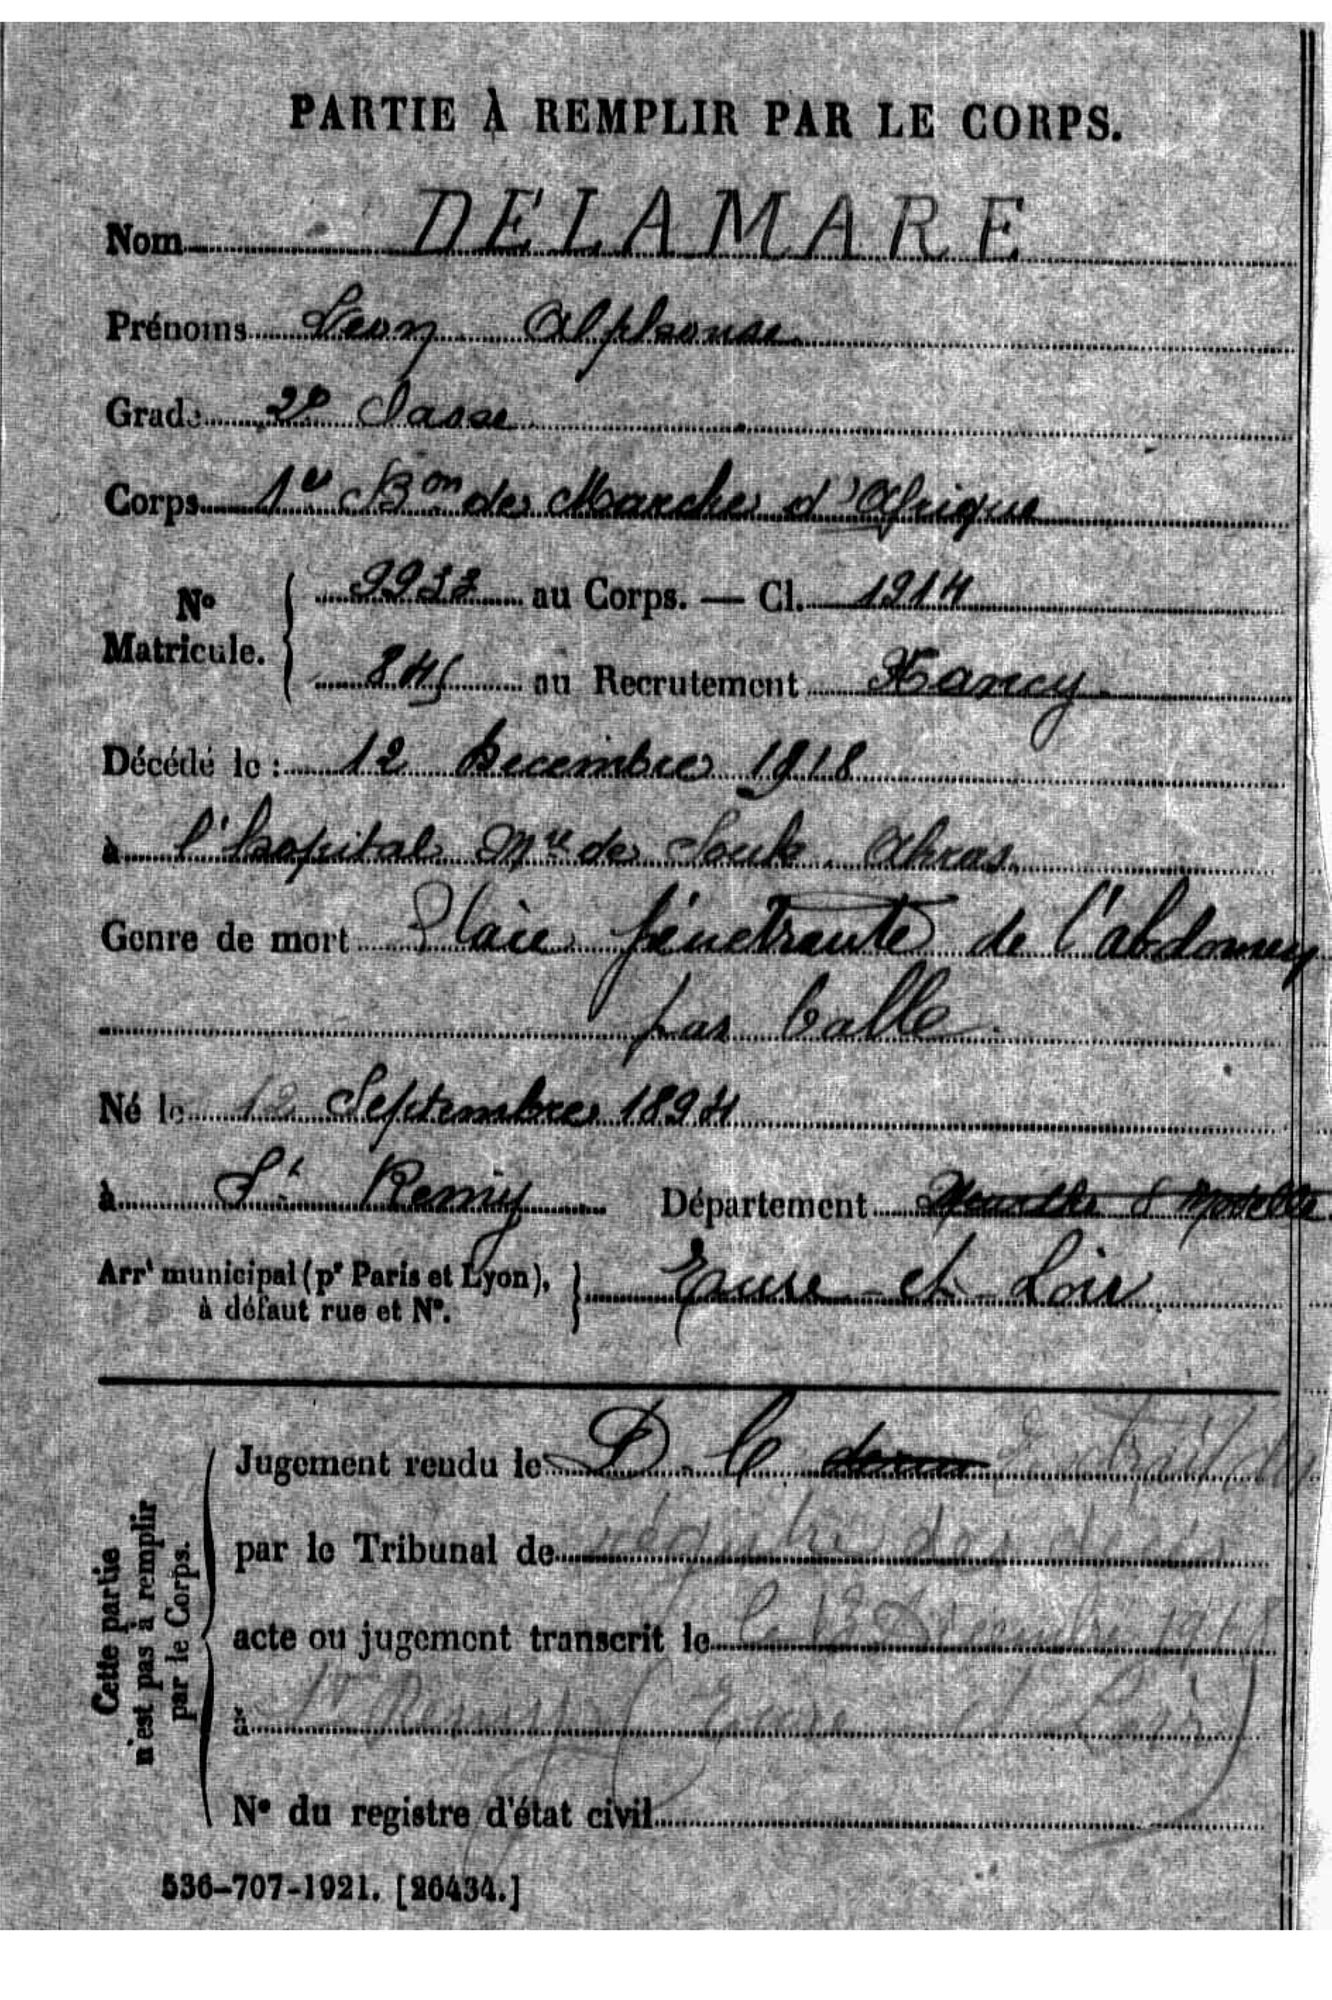 PARTIE À REMPLIR PAR LE CORPS.
Nom DELAMARE
Prénoms Léon Alphonse
Grade 2e Classe
Corps 1er Bon de Marche d'Afrique
No Matricule. 9933 au Corps. — Cl. 1914
845 au Recrutement Nancy
Décédé le : 12 Décembre 1918
à l'hopital Mre de Souk Ahras
Genre de mort Plaie pénétrante de l'abdomen
par balle.
Né le 12 Septembre 1894
à St Remy Département Meurthe & Moselle
Arrt municipal (pr Paris et Lyon), à défaut rue et No. Eure-et-Loir
Cette partie n'est pas à remplir par le Corps.
Jugement rendu le D. C. Extrait du
par le Tribunal de régistre des décès
acte ou jugement transcrit le le 12 Décembre 1918
à St Remy (Eure et Loir)
No du registre d'état civil
536-707-1921. [26434.]